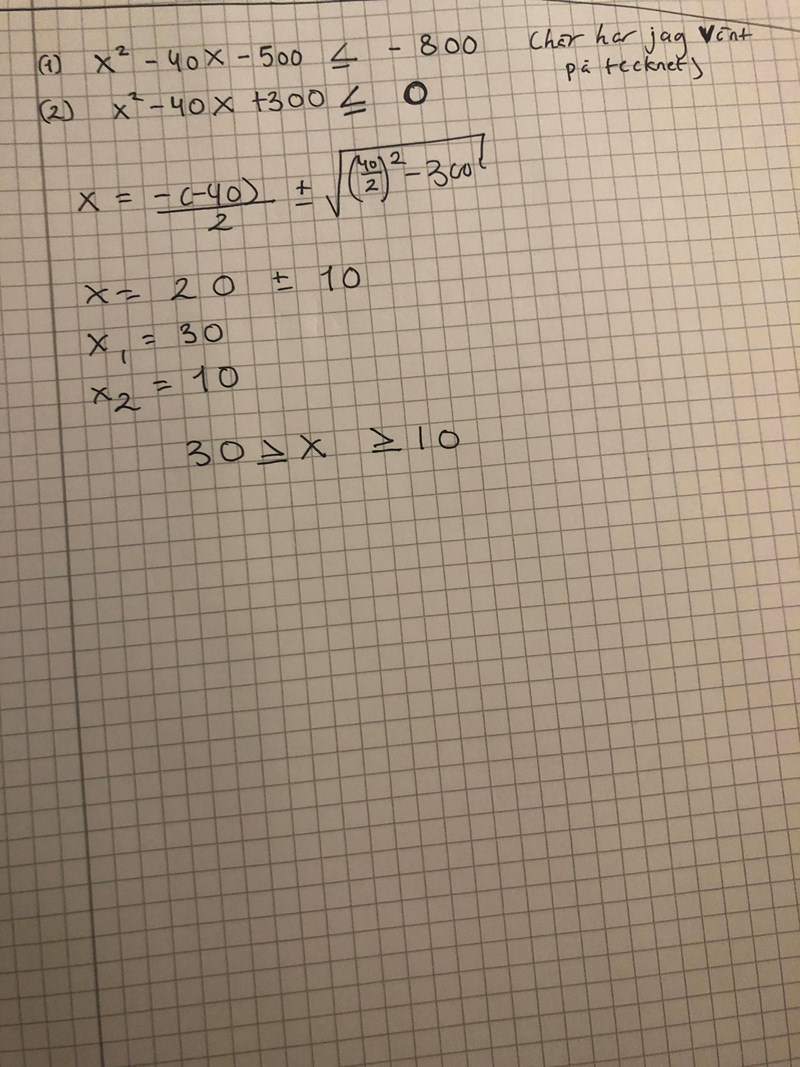 (1) x² - 40x - 500 ≤ - 800 (här har jag vänt
på tecknet)
(2) x² - 40x + 300 ≤ 0
x = -(-40)/2 ± √((40/2)² - 300)
x = 20 ± 10
x₁ = 30
x₂ = 10
30 ≥ x ≥ 10